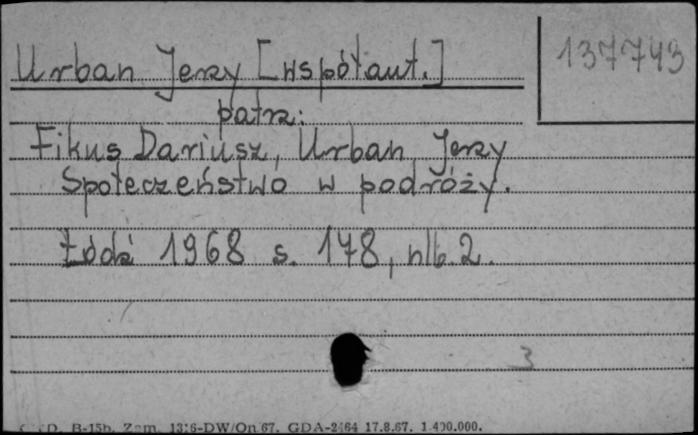 137743
Urban Jerzy [współaut.]
patrz:
Fikus Dariusz, Urban Jerzy
Społeczeństwo w podróży.
Łódź 1968 s. 178, nlb. 2.
3
D. B-15b. Zam. 1316-DW/On/67. GDA-2464 17.8.67. 1.400.000.